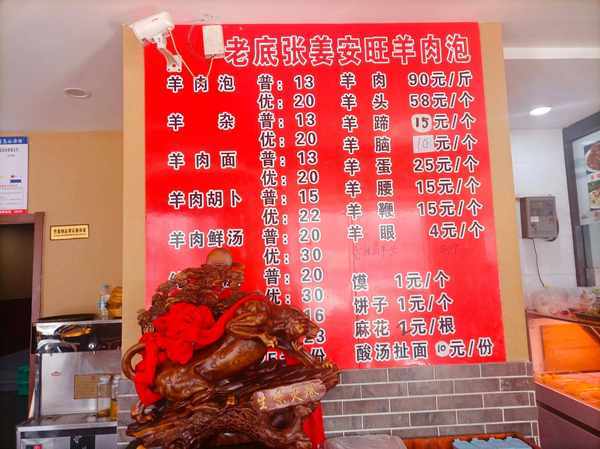 老底张姜安旺羊肉泡
羊肉泡 普：13 羊肉 90元/斤
优：20 羊头 58元/个
羊杂 普：13 羊蹄 15元/个
优：20 羊脑 10元/个
羊肉面 普：13 羊蛋 25元/个
优：20 羊腰 15元/个
羊肉胡卜 普：15 羊鞭 15元/个
优：22 羊眼 4元/个
羊肉鲜汤 普：20
优：30
普：20 馍 1元/个
优：30 饼子 1元/个
16 麻花 1元/根
23 酸汤扯面 10元/份
份